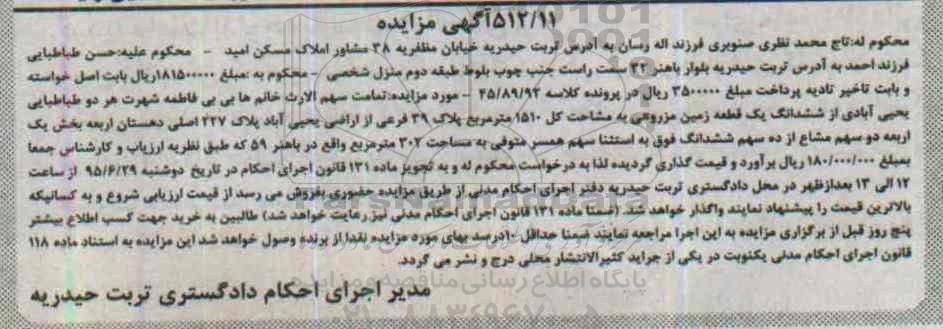 ۵۱۲/۱۱آگهی مزایده
محکوم له:تاج محمد نظری صنوبری فرزند اله رسان به آدرس تربت حیدریه خیابان مظفریه ۳۸ مشاور املاک مسکن امید - محکوم علیه:حسن طباطبایی
فرزند احمد به آدرس تربت حیدریه بلوار باهنر ۳۲ سمت راست جنب چوب بلوط طبقه دوم منزل شخصی - محکوم به :مبلغ ۱۸۱۵۰۰۰۰۰ریال بابت اصل خواسته
و بابت تاخیر تادیه پرداخت مبلغ ۳۵۰۰۰۰۰ ریال در پرونده کلاسه ۴۵/۸۹/۹۲ - مورد مزایده:تمامت سهم الارث خانم ها بی بی فاطمه شهرت هر دو طباطبایی
یحیی آبادی از ششدانگ یک قطعه زمین مزروعی به مشاحت کل ۱۵۱۰ مترمربع پلاک ۳۹ فرعی از اراضی یحیی آباد پلاک ۲۲۷ اصلی دهستان اربعه بخش یک
اربعه دو سهم مشاع از ده سهم ششدانگ فوق به استثنا سهم همسر متوفی به مساحت ۳۰۲ مترمربع واقع در باهنر ۵۹ که طبق نظریه ارزیاب و کارشناس جمعا
بمبلغ ۱۸۰/۰۰۰/۰۰۰ ریال برآورد و قیمت گذاری گردیده لذا به درخواست محکوم له و به تجویز ماده ۱۳۱ قانون اجرای احکام در تاریخ دوشنبه ۹۵/۶/۲۹ از ساعت
۱۲ الی ۱۳ بعدازظهر در محل دادگستری تربت حیدریه دفتر اجرای احکام مدنی از طریق مزایده حضوری بفروش می رسد از قیمت ارزیابی شروع و به کسانیکه
بالاترین قیمت را پیشنهاد نمایند واگذار خواهد شد. (ضمنا ماده ۱۳۱ قانون اجرای احکام مدنی نیز رعایت خواهد شد) طالبین به خرید جهت کسب اطلاع بیشتر
پنج روز قبل از برگزاری مزایده به این اجرا مراجعه نمایند ضمنا حداقل ۱۰درصد بهای مورد مزایده نقدا از برنده وصول خواهد شد این مزایده به استناد ماده ۱۱۸
قانون اجرای احکام مدنی یکنوبت در یکی از جراید کثیرالانتشار محلی درج و نشر می گردد.
پایگاه اطلاع رسانی مناقصه و مزایده
مدیر اجرای احکام دادگستری تربت حیدریه